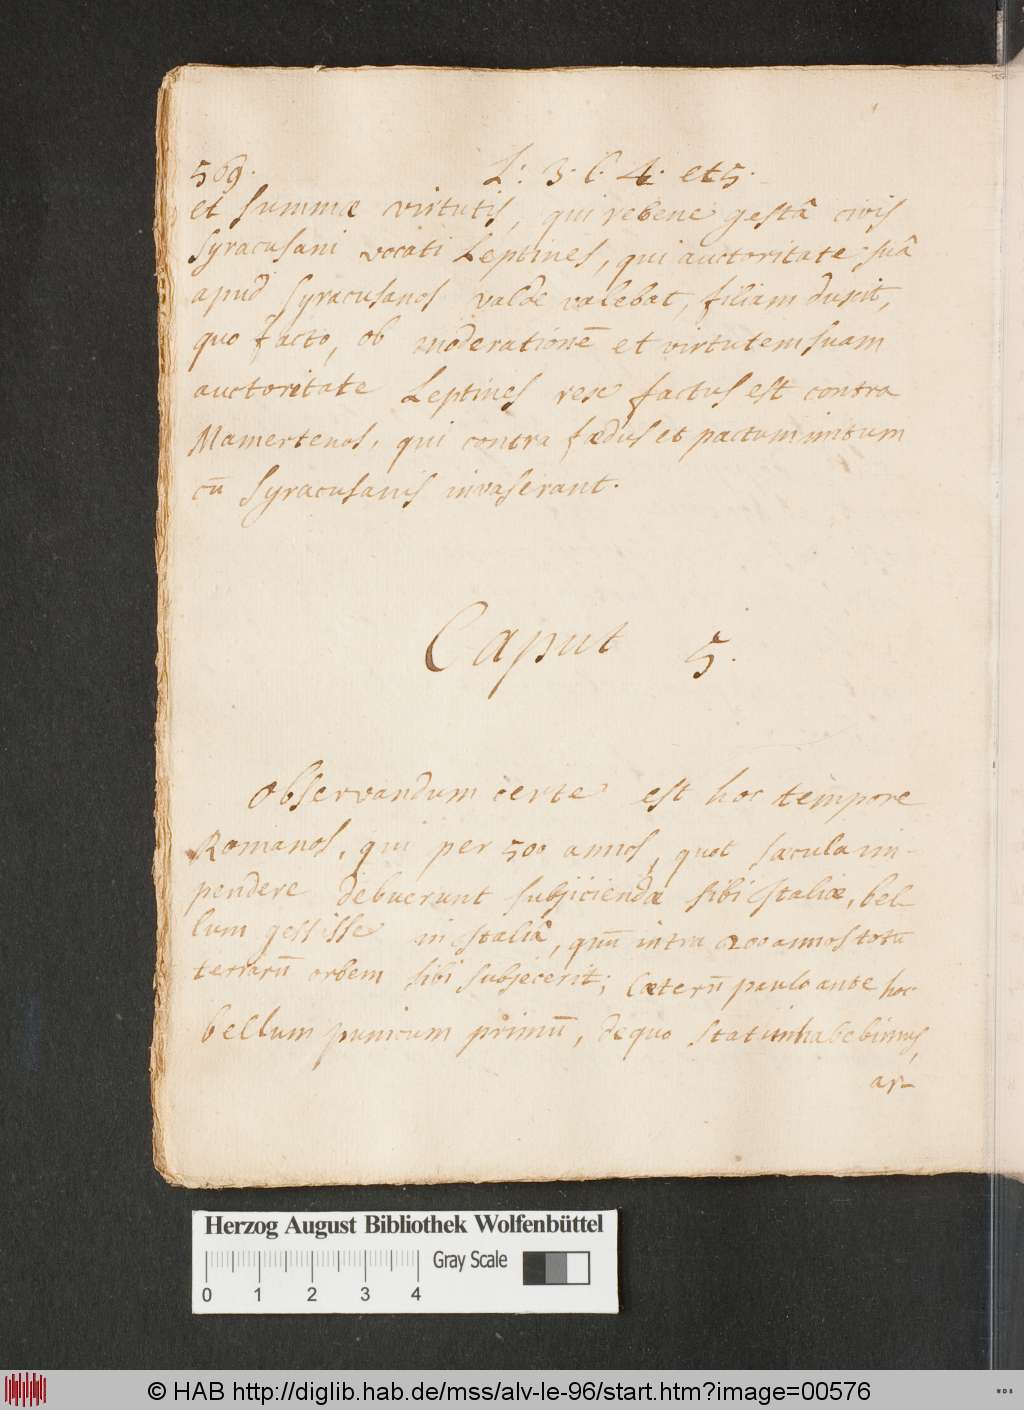 569. L: 3. C. 4. et 5.
et summæ virtutis, qui re bene gestâ civis
Syracusani vocati Leptines, qui auctoritate suâ
apud Syracusanos valde valebat, filiam duxit,
quo facto, ob moderationē et virtutem suam
auctoritate Leptines rex factus est contra
Mamertenos, qui contra fœdus et pactum initum
cū Syracusanis invaserant.
Caput 5.
Observandum certe est hoc tempore
Romanos, qui per 500 annos, quot sæcula im-
pendere debuerunt subjiciendæ sibi Italiæ, bel-
lum gessisse in Italiâ, quū intra 200 annos totū
terrarū orbem sibi subjecerit; Cæterū paulo ante hoc
bellum punicum primū, de quo statim habebimus,
ar-
Herzog August Bibliothek Wolfenbüttel
Gray Scale
0 1 2 3 4
© HAB http://diglib.hab.de/mss/alv-le-96/start.htm?image=00576